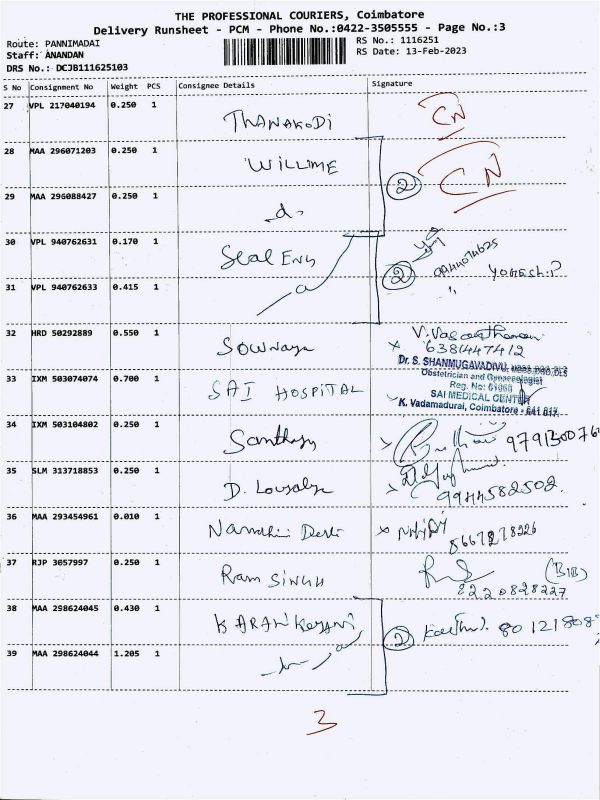 THE PROFESSIONAL COURIERS, Coimbatore
Delivery Runsheet - PCM - Phone No.:0422-3505555 - Page No.:3
Route: PANNIMADAI
RS No.: 1116251
Staff: ANANDAN
RS Date: 13-Feb-2023
DRS No.: DCJB111625103
S No Consignment No Weight PCS Consignee Details Signature
27 VPL 217040194 0.250 1 THANAKODI CN
28 MAA 296071203 0.250 1 WILLIME
2 CN
29 MAA 296088427 0.250 1 -d-
30 VPL 940762631 0.170 1 Seal Eng
9944074625
2 YOGESH.P
31 VPL 940762633 0.415 1
32 HRD 50292889 0.550 1 Sowmaya
6381447412
Dr. S. SHANMUGAVADIVU,
Obstetrician and Gynaecologist
33 IXM 503074074 0.700 1 SAI HOSPITAL
Reg. No:
SAI MEDICAL CENTER
K. Vadamadurai, Coimbatore - 641 017
34 IXM 503104802 0.250 1 Santhiya
35 SLM 313718853 0.250 1 D.
9944582502.
36 MAA 293454961 0.010 1 Nandhini Devi
8667278226
37 RJP 3057997 0.250 1 Ram SINGH
8220828227
38 MAA 298624045 0.430 1 KARAN
2 80121808
39 MAA 298624044 1.205 1
3